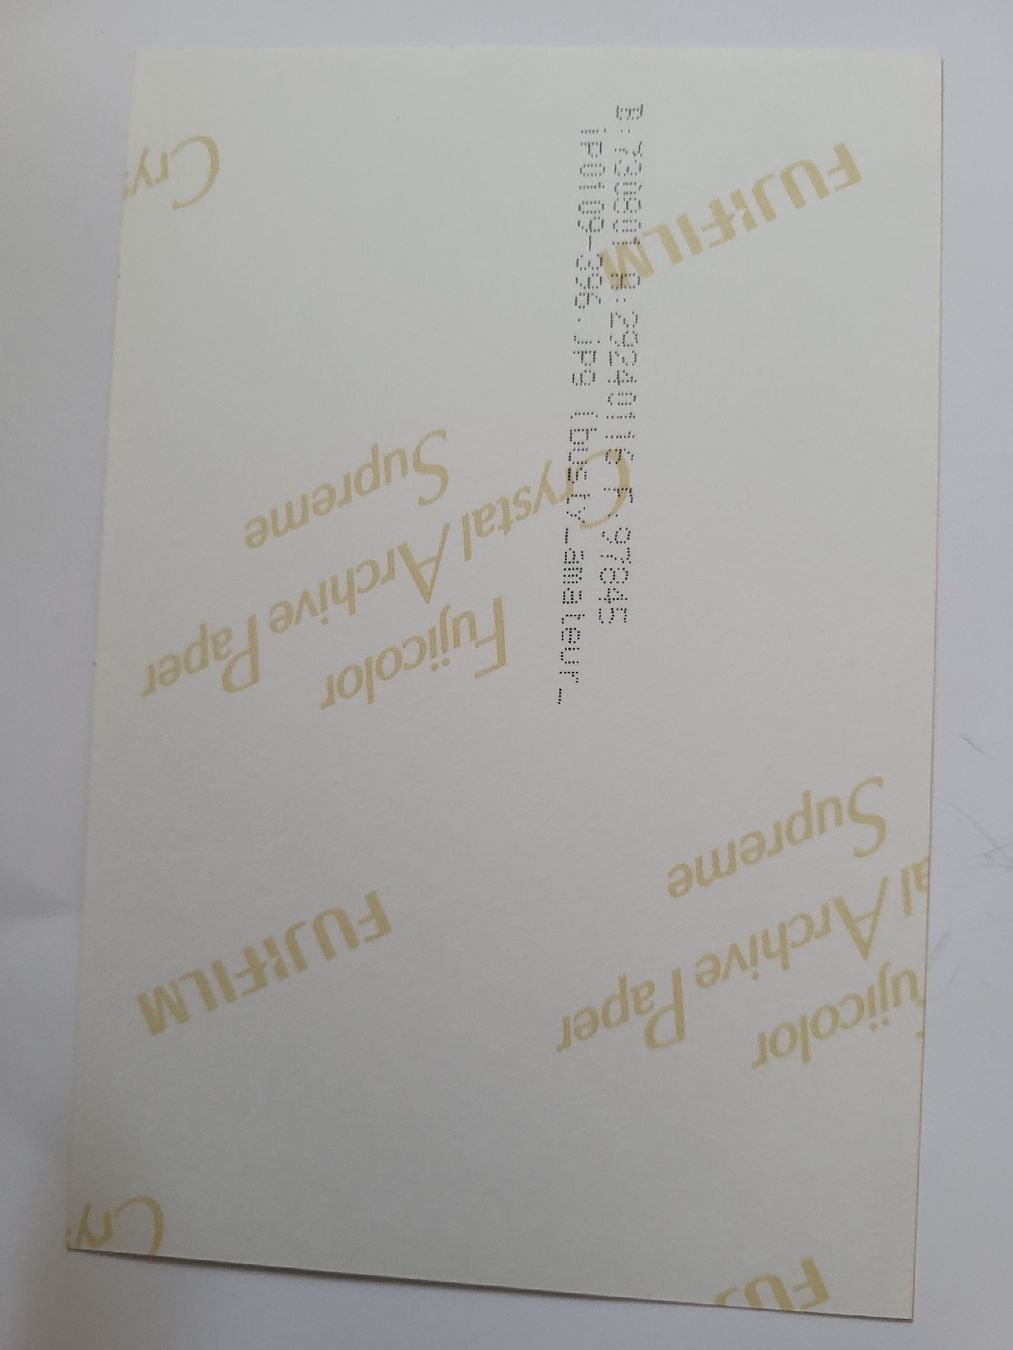 Crys
FUJIFILM
B:730801 A:29240116 F:97845
iP0109-396.jpg (busty_amateur_
Fujicolor
Crystal Archive Paper
Supreme
FUJIFILM
Fujicolor
al Archive Paper
Supreme
Crys
FUJ